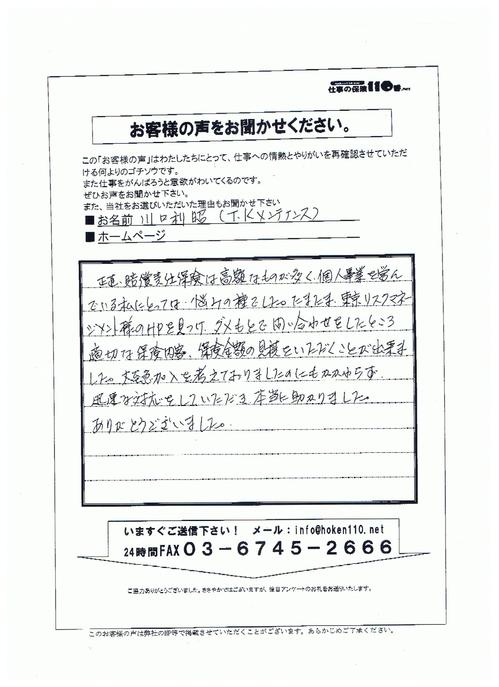 仕事の保険110番.net
お客様の声をお聞かせください。
この「お客様の声」はわたしたちにとって、仕事への情熱とやりがいを再確認させていただ
ける何よりのゴチソウです。
また仕事をがんばろうと意欲がわいてくるのです。
ぜひお声をお聞かせ下さい。
また、当社をお選びいただいた理由もお聞かせ下さい
■お名前 川口利昭 (T.Kメンテナンス)
■ホームページ
正直、賠償責任保険は高額なものが多く、個人事業を営ん
でいる私にとっては、悩みの種でした。たまたま、東京リスクマネ
ジメント様のHPを見つけ、ダメもとで問い合わせをしたところ
適切な保険内容、保険金額の見積をいただくことが出来ま
した。大至急加入を考えておりましたのにもかかわらず、
迅速な対応をしていただき、本当に助かりました。
ありがとうございました。
いますぐご送信下さい! メール:info@hoken110.net
24時間FAX03-6745-2666
ご協力ありがとうございました。ささやかではございますが、後日アンケートのお礼をお送りいたします。
このお客様の声は弊社のHP等で掲載させていただくことがございます。あらかじめご了承ください。